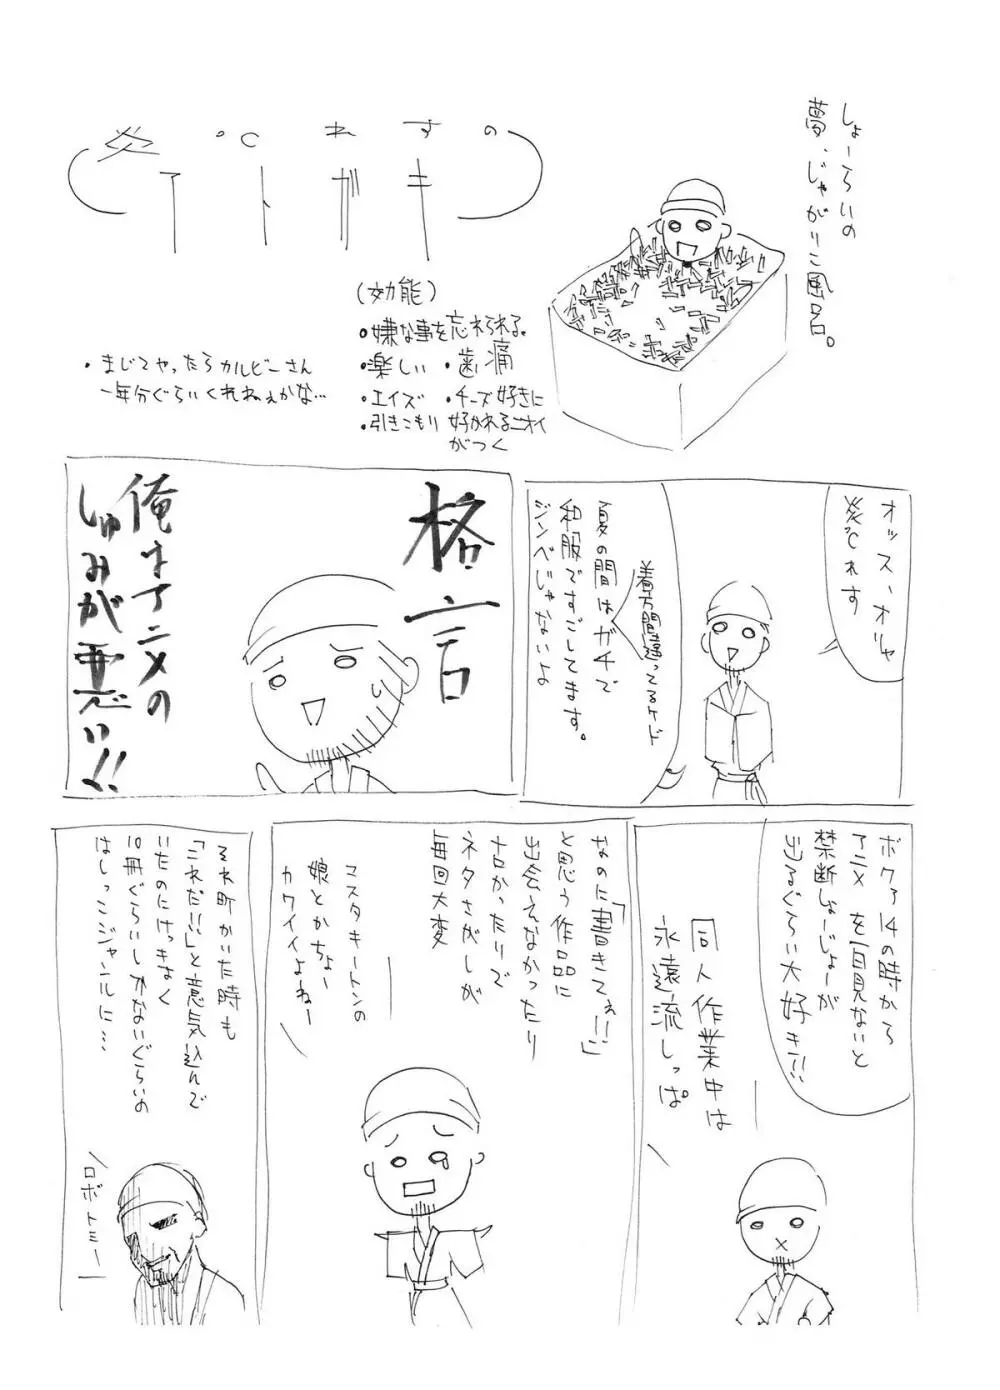 しょーらいの
夢、じゃがりこ風呂。
炎℃れすの
アトガキ
(効能)
•嫌な事を忘れられる。
•楽しい
•歯痛
•エイズ
•チーズ好きに
好かれるニオイ
がつく
•引きこもり
•まじでやったらカルビーさん
一年分ぐらいくれねぇかな…
オッス、オリャ
炎℃れす
夏の間はガチで
和服ですごしてます。
ジンベじゃないよ
着方間違ってるケド
格言
俺はアニメの
しゅみが悪い!!
ボクァ14の時から
アニメを一日見ないと
禁断しょーじょーが
出るぐらい大好き!!
同人作業中は
永遠流しっぱ
なのに「書きてぇ!!」
と思う作品に
出会えなかったり
ナロかったりで
ネタさがしが
毎回大変
マスタキートンの
娘とかちょー
カワイイよねー
それ町かいた時も
「これだ!!」と意気込んで
いたのにけっきょく
10冊ぐらいしかないぐらいの
はしっこジャンルに…
ロボトミー